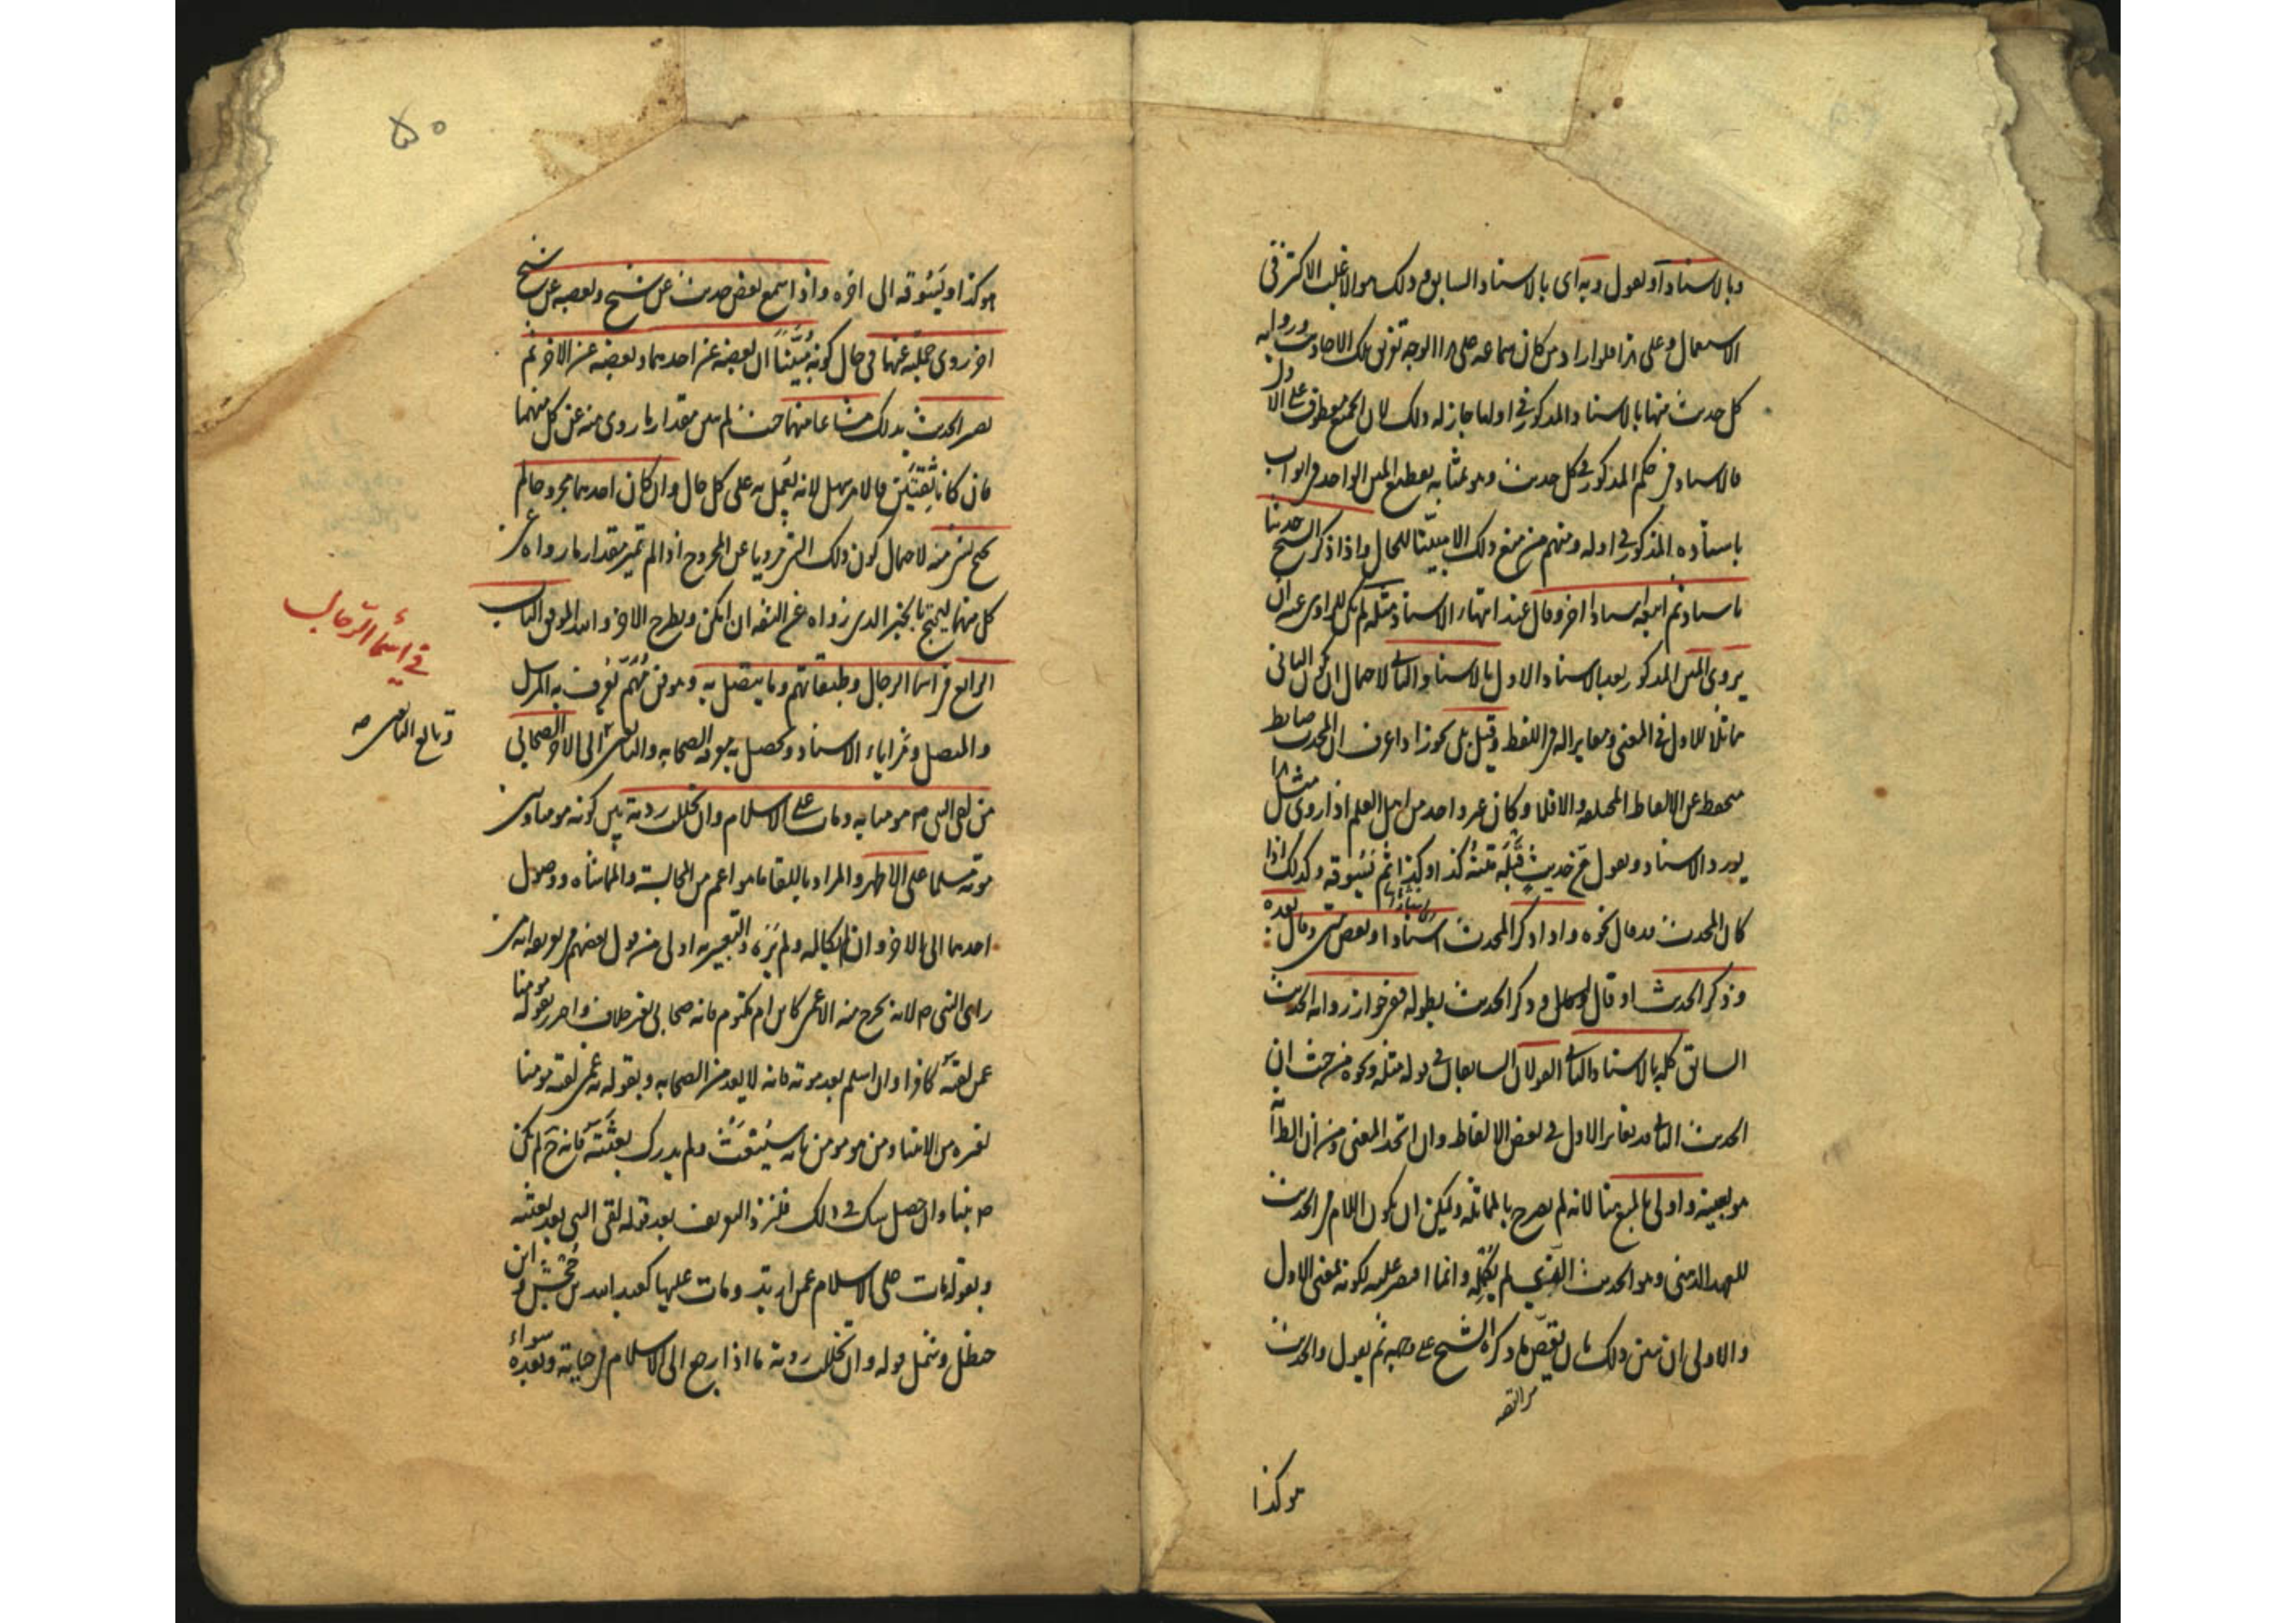 وبالاسناد او يقول وبه اى بالاسناد السابق وذلك هو الاغلب الاكثر فى
الاستعمال وعلى هذا فلو اراد من كان سماعه على هذا الوجه تفريق تلك الاحاديث ورواية
كل حديث منها بالاسناد المذكور فى اولها جاز له ذلك لان الجميع معطوف على الاول
فالاسناد فى حكم المذكور فى كل حديث وهو بمثابة تقطيع المتن الواحد فى ابواب
باسناده المذكور فى اوله ومنهم من منع ذلك الا مبينا للحال واذا ذكر الشيخ حديثا
باسناد ثم اتبعه اسنادا اخر وقال عند انتهاء الاسناد مثله لم يكن للراوى عنه ان
يروى المتن المذكور بعد الاسناد الاول بالاسناد الثانى لاحتمال ان يكون الثانى
مماثلا للاول فى المعنى ومغايرا له فى اللفظ وقيل بل يجوز اذا عرف ان المحدث ضابط
متحفظ عن الالفاظ المختلفة والا فلا وكان غير واحد من اهل العلم اذا روى مثل هذا
يورد الاسناد ويقول مثل حديث قبله متنه كذا وكذا ثم يسوقه وكذلك اذا
كان المحدث قد قال نحوه واذا ذكر المحدث اسنادا وبعض متن وقال بعده
وذكر الحديث او قال وذكر الحديث بطوله ففى جواز رواية الحديث
السابق كله بالاسناد الثانى القولان السابقان فى قوله مثله ونحوه من حيث ان
الحديث الثانى قد يغاير الاول فى بعض الالفاظ وان اتحد المعنى ومن ان الظاهر انه
هو بعينه واولى بالمنع هنا لانه لم يصرح بالمماثلة ويمكن ان يكون اللام فى الحديث
للعهد الذهنى وهو الحديث الذى لم يكمله وانما اقتصر عليه لكونه بمعنى الاول
والاولى ان يبين ذلك بان يقص ما ذكره الشيخ على وجهه ثم يقول والحديث
هو كذا
٥٠
هو كذا ويسوقه الى اخره واذا سمع بعض حديث عن شيخ وبعضه عن شيخ
اخر روى جملته عنهما فى حال كونه مبينا ان بعضه عن احدهما وبعضه عن الاخر ثم
يصير الحديث بذلك مشاعا منهما حيث لم يبين مقدار ما روى منه عن كل منهما
فان كانا ثقتين فالامر سهل لانه يعمل به على كل حال وان كان احدهما مجروحا لم
يحتج بشئ منه لاحتمال كون ذلك الشئ مرويا عن المجروح اذا لم يتميز مقدار ما رواه عن
كل منهما ليحتج بالخبر الذى رواه عن الثقة ان امكن ويطرح الاخر والله الموفق الباب
الرابع فى اسماء الرجال وطبقاتهم وما يتصل به وهو فن مهم يعرف به المرسل
والمتصل ومزايا الاسناد ويحصل به معرفة الصحابة والتابعى الى الاخر الصحابى
من لقى النبى ص مومنا به ومات على الاسلام وان تخلل ردته بين كونه مومنا وبين
موته مسلما على الاظهر والمراد باللقاء ما هو اعم من المجالسة والمماشاة ووصول
احدهما الى الاخر وان لم يكالمه ولم يره والتعبير به اولى من قول بعضهم فى تعريفه انه من
راى النبى ص لانه يخرج منه الاعمى كابن ام مكتوم فانه صحابى بغير خلاف واحترز بقوله مومنا
عمن لقيه كافرا وان اسلم بعد موته فانه لا يعد من الصحابة وبقوله به عمن لقيه مومنا
بغيره من الانبياء ومن هو مومن بانه سيبعث ولم يدرك بعثته فانه ح لم يكن
نبيا وان حصل شك فى ذلك فليزد التعريف بعد قوله لقى النبى بعد بعثته
وبقوله مات على الاسلام عمن ارتد ومات عليها كعبيد الله بن جحش وابن
خطل وشمل قوله وان تخلل ردته ما اذا رجع الى الاسلام فى حياته وبعده سواء
فى اسماء الرجال
وتابع التابعى صح